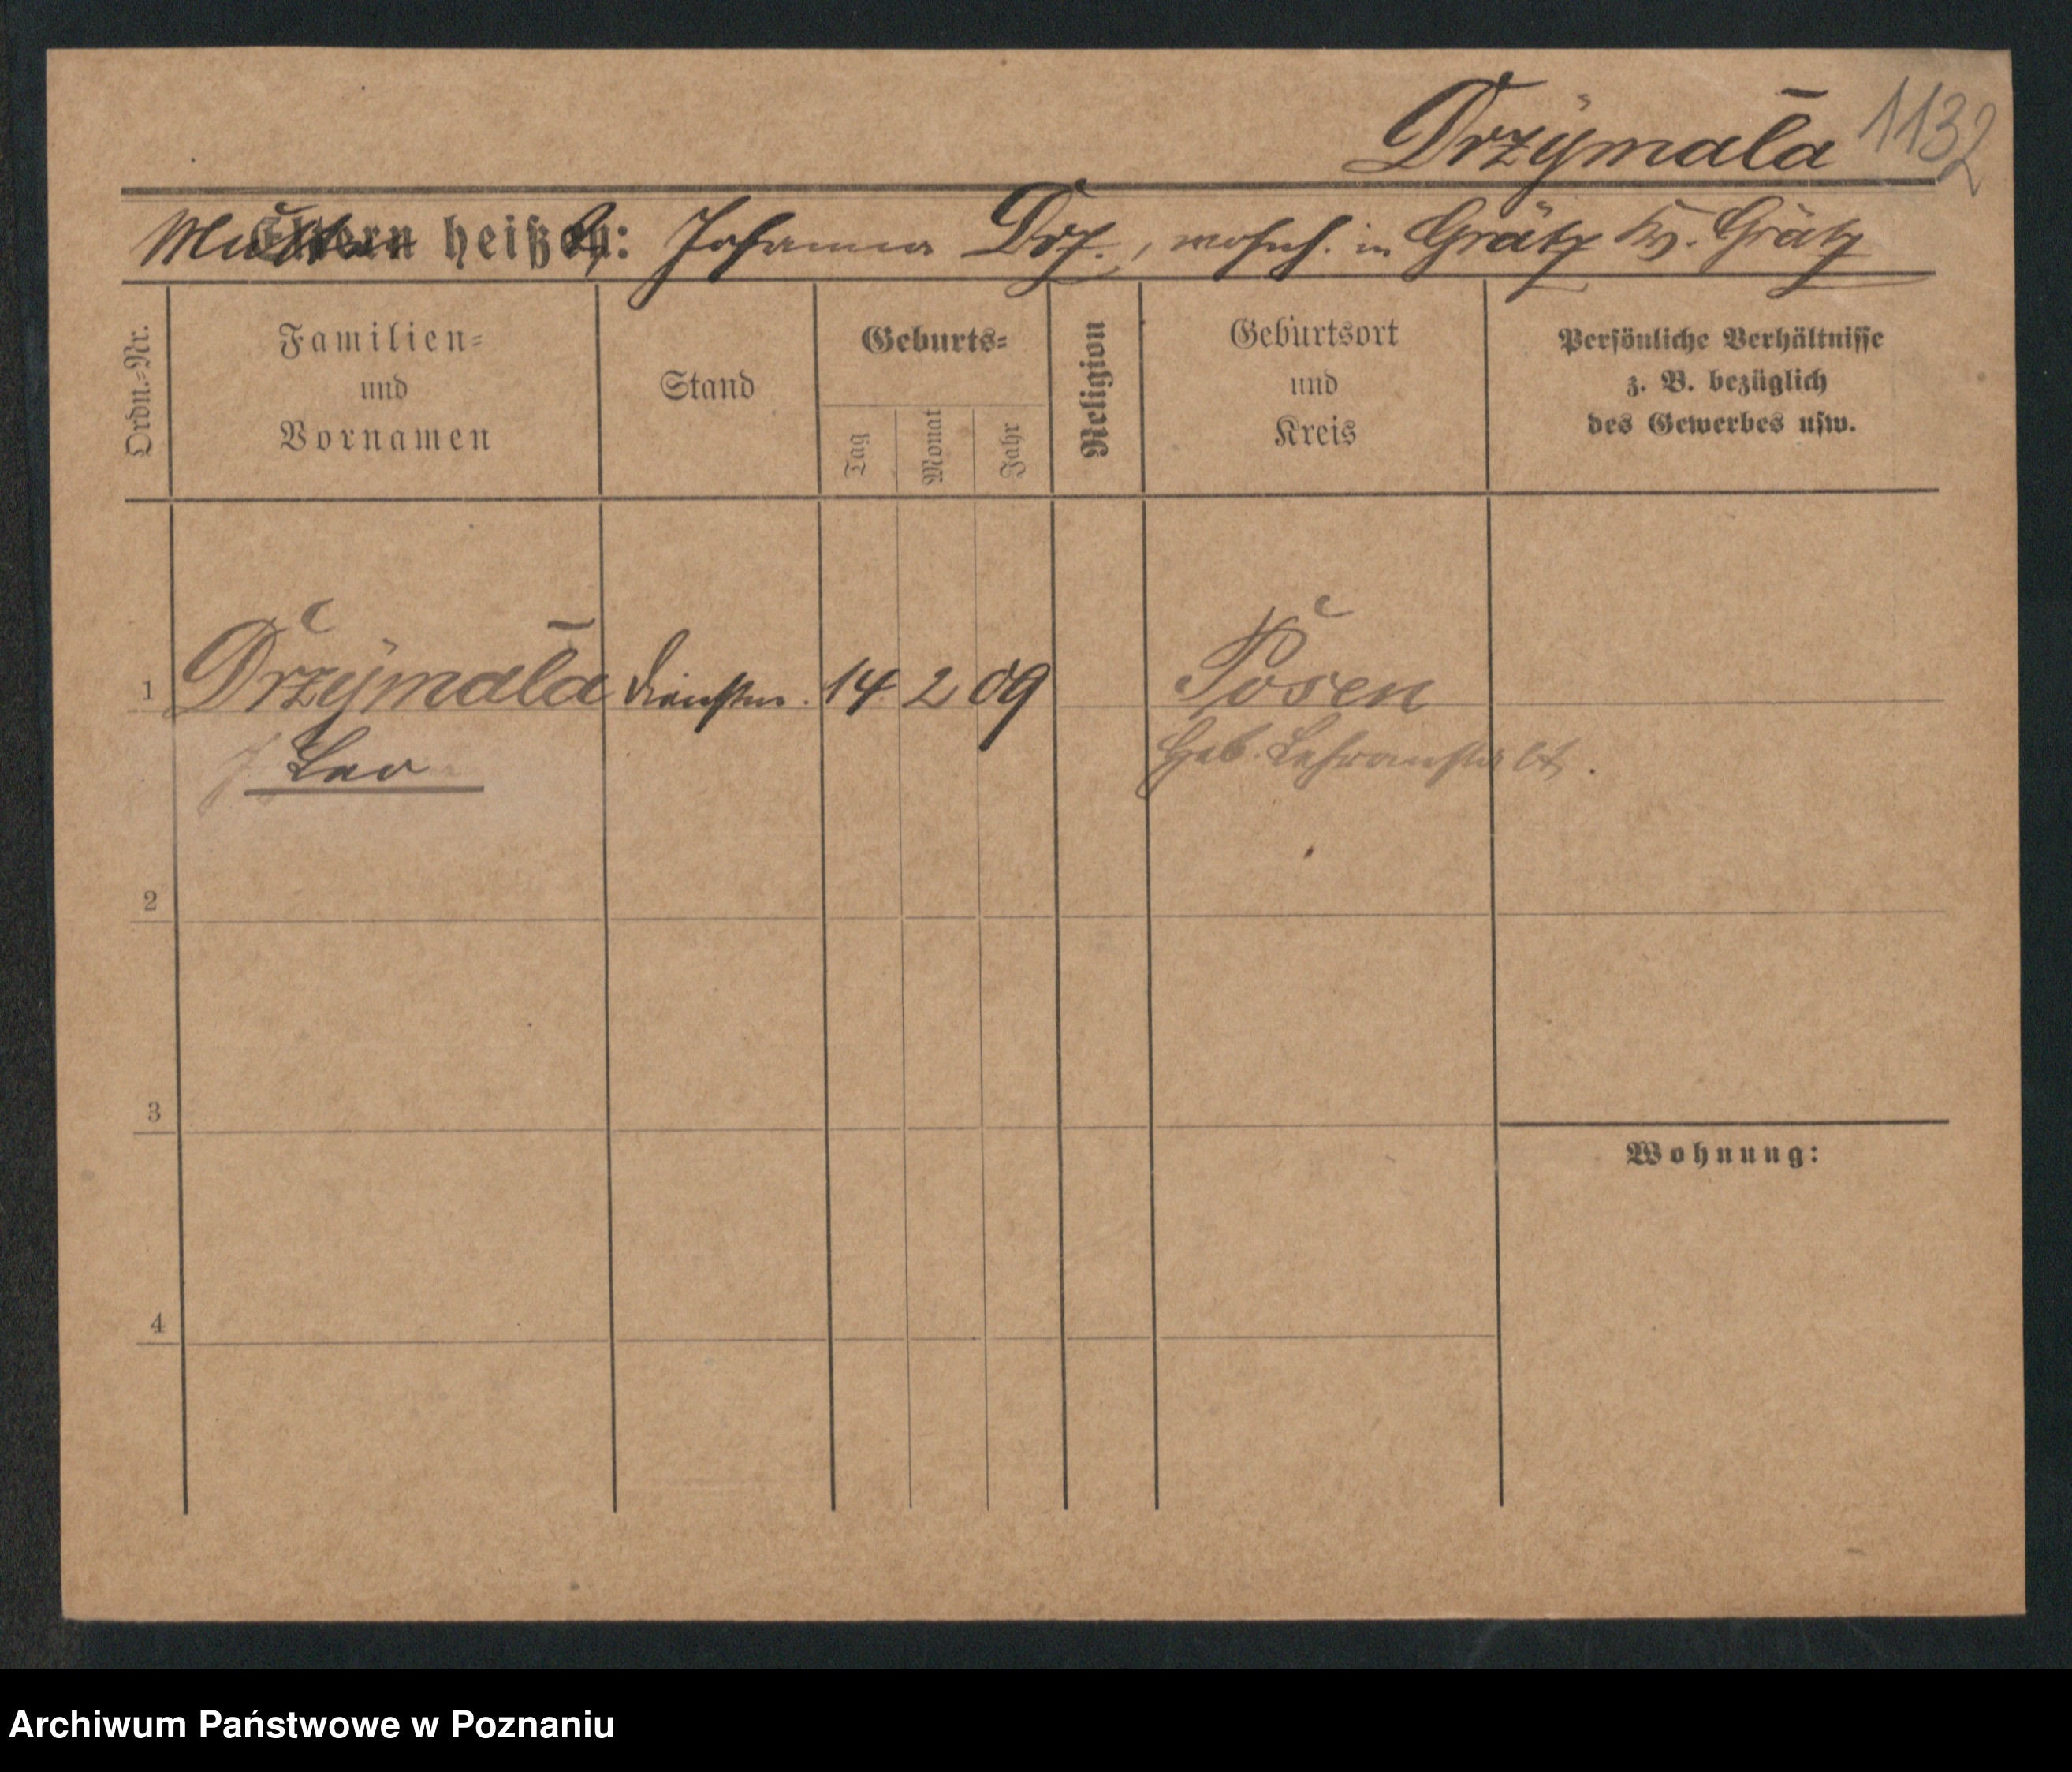 Drzymala 1132
Mutter heißt: Johanna Drz., wohnh. in Grätz Kr. Grätz
Ordn.-Nr.
Familien-
und
Vornamen
Stand
Geburts-
Tag
Monat
Jahr
Religion
Geburtsort
und
Kreis
Persönliche Verhältnisse
z. B. bezüglich
des Gewerbes usw.
1 Drzymala 14. 2 09 Posen
Leo
Heb. Lehranstalt.
2
3
Wohnung:
4
Archiwum Państwowe w Poznaniu